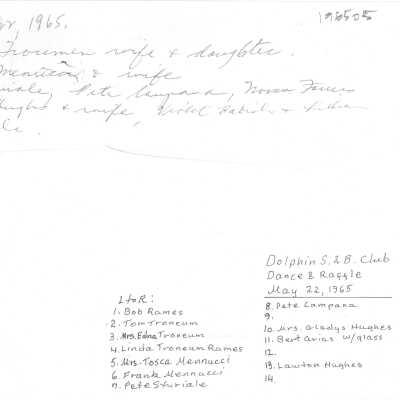 , 1965.
196505
wife & daughter.
& wife
Pete Campana,
& wife, Violet &
Dolphin S. & B. Club
Dance & Raffle
May 22, 1965
L to R:
1. Bob Rames
2. Tom Troneum
3. Mrs. Edna Troneum
4. Linda Troneum Rames
5. Mrs. Tosca Mennucci
6. Frank Mennucci
7. Pete Sturiale
8. Pete Campana
9.
10. Mrs. Gladys Hughes
11. Bert Arias w/glass
12.
13. Lawton Hughes
14.